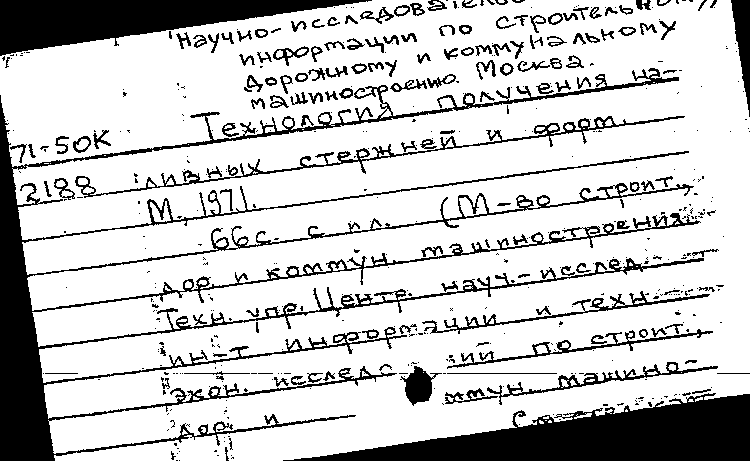 научно-исследовательс
информации по строительному,
дорожному и коммунальному
машиностроению. Москва.
71-50К Технология получения на-
2188 ливных стержней и форм.
М., 1971.
66с. с ил. (М-во строит.,
дор. и коммун. машиностроения.
Техн. упр. Центр. науч.-исслед.
ин-т информации и техн.-
экон. исслед ий по строит.,
дор. и ммун. машино-